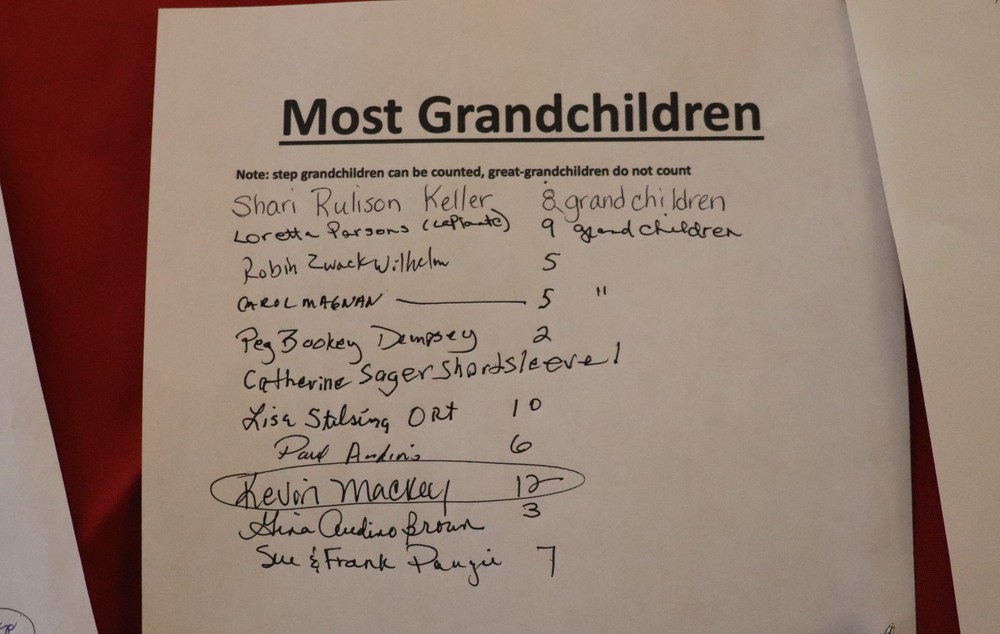 Most Grandchildren
Note: step grandchildren can be counted, great-grandchildren do not count
Shari Rulison Keller 8 grandchildren
Loretta Parsons (LaPlante) 9 grandchildren
Robin Zwack Wilhelm 5
CAROL MAGNAN 5 "
Peg Bookey Dempsey 2
Catherine Sager Shortsleeve 1
Lisa Stilsing ORt 10
Paul Audino 6
Kevin Mackey 12
Gina Audino Brown 3
Sue & Frank 7